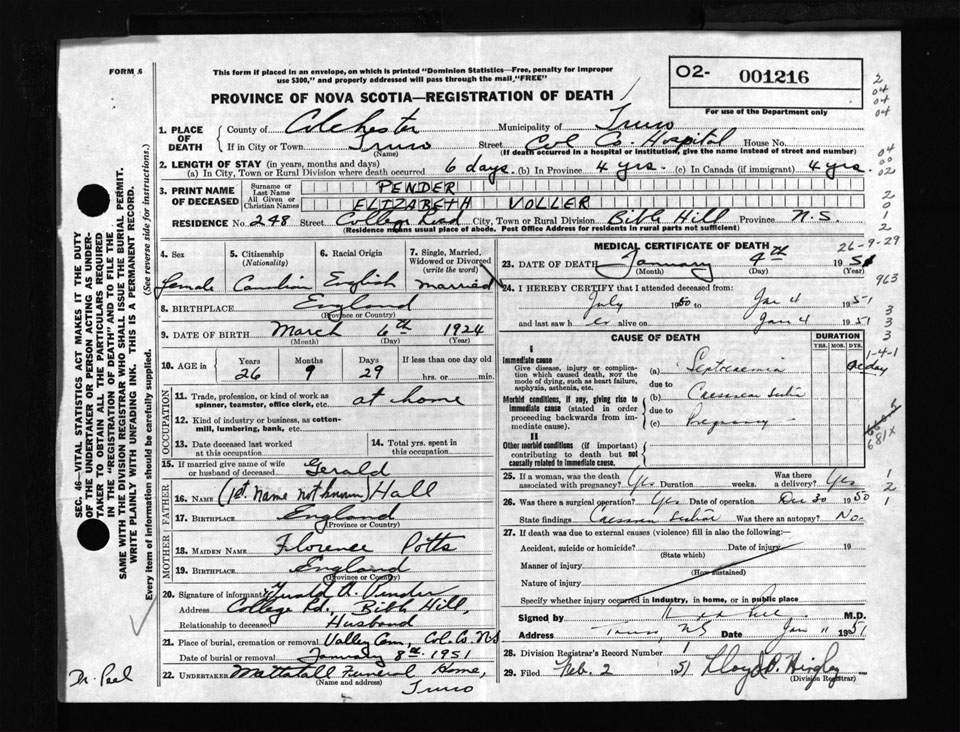 FORM 6
This form if placed in an envelope, on which is printed "Dominion Statistics—Free, penalty for improper
use $300," and properly addressed will pass through the mail "FREE"
O2- 001216
For use of the Department only
PROVINCE OF NOVA SCOTIA—REGISTRATION OF DEATH
1. PLACE OF DEATH
County of Colchester Municipality of Truro
If in City or Town Truro (Name) Street Col Co. Hospital House No.
(If death occurred in a hospital or institution, give the name instead of street and number)
2. LENGTH OF STAY (in years, months and days)
(a) In City, Town or Rural Division where death occurred 6 days. (b) In Province 4 yrs. (c) In Canada (if immigrant) 4 yrs.
3. PRINT NAME OF DECEASED
Surname or Last Name PENDER
All Given or Christian Names ELIZABETH VOLLER
RESIDENCE No. 248 Street College Road City, Town or Rural Division Bible Hill Province N.S.
(Residence means usual place of abode. Post Office Address for Residents in rural parts not sufficient)
4. Sex
female
5. Citizenship (Nationality)
Canadian
6. Racial Origin
English
7. Single, Married, Widowed or Divorced (write the word)
married
8. BIRTHPLACE England
(Province or Country)
9. DATE OF BIRTH March 6th 1924
(Month) (Day) (Year)
10. AGE in Years Months Days If less than one day old
26 9 29 hrs. or min.
OCCUPATION
11. Trade, profession, or kind of work as spinner, teamster, office clerk, etc. at home
12. Kind of industry or business, as cotton-mill, lumbering, bank, etc.
13. Date deceased last worked at this occupation
14. Total yrs. spent in this occupation
15. If married give name of wife or husband of deceased Gerald
FATHER
16. NAME (1st. Name not known) Hall
17. BIRTHPLACE England
(Province or Country)
MOTHER
18. MAIDEN NAME Florence Potts
19. BIRTHPLACE England
(Province or Country)
20. Signature of informant Gerald A. Pender
Address College Rd., Bible Hill,
Relationship to deceased Husband
21. Place of burial, cremation or removal Valley Cem, Col. Co. NS
Date of burial or removal January 8th. 1951
22. UNDERTAKER Mattatall Funeral Home,
(Name and address) Truro
MEDICAL CERTIFICATE OF DEATH
26-9-29
23. DATE OF DEATH January 4th 1951
(Month) (Day) (Year)
24. I HEREBY CERTIFY that I attended deceased from:
July 1950 to Jan 4 1951
and last saw her alive on Jan 4 1951
CAUSE OF DEATH
DURATION
YRS. MOS. DYS.
I
Immediate cause
Give disease, injury or complication which caused death, NOT the mode of dying, such as heart failure, asphyxia, asthenia, etc.
(a) Septicaemia
due to
Morbid conditions, if any, giving rise to immediate cause (stated in order proceeding backwards from immediate cause).
(b) Caesarean Section
due to
(c) Pregnancy
II
Other morbid conditions (if important) contributing to death but not causally related to immediate cause.
25. If a woman, was the death associated with pregnancy? Yes Duration weeks. Was there a delivery? Yes
26. Was there a surgical operation? Yes Date of operation Dec 30 1950
State findings Caesarean Section Was there an autopsy? No
27. If death was due to external causes (violence) fill in also the following:—
Accident, suicide or homicide? Date of injury 19
(State which)
Manner of injury
(How sustained)
Nature of injury
Specify whether injury occurred in industry, in home, or in public place
Signed by M.D.
Address Truro, NS Date Jan 11 1951
28. Division Registrar's Record Number 1
29. Filed Feb. 2 1951
(Division Registrar)
SEC. 46—VITAL STATISTICS ACT MAKES IT THE DUTY
OF THE UNDERTAKER OR PERSON ACTING AS UNDER-
TAKER TO OBTAIN ALL THE PARTICULARS REQUIRED
IN THE "REGISTRATION OF DEATH" AND TO FILE THE
SAME WITH THE DIVISION REGISTRAR WHO SHALL ISSUE THE BURIAL PERMIT.
WRITE PLAINLY WITH UNFADING INK. THIS IS A PERMANENT RECORD.
Every item of information should be carefully supplied. (See reverse side for instructions.)
Dr. Peel
2
04
04
04
04
00
02
2
0
1
2
963
3
3
3
1-4-1
681x
1
2
1